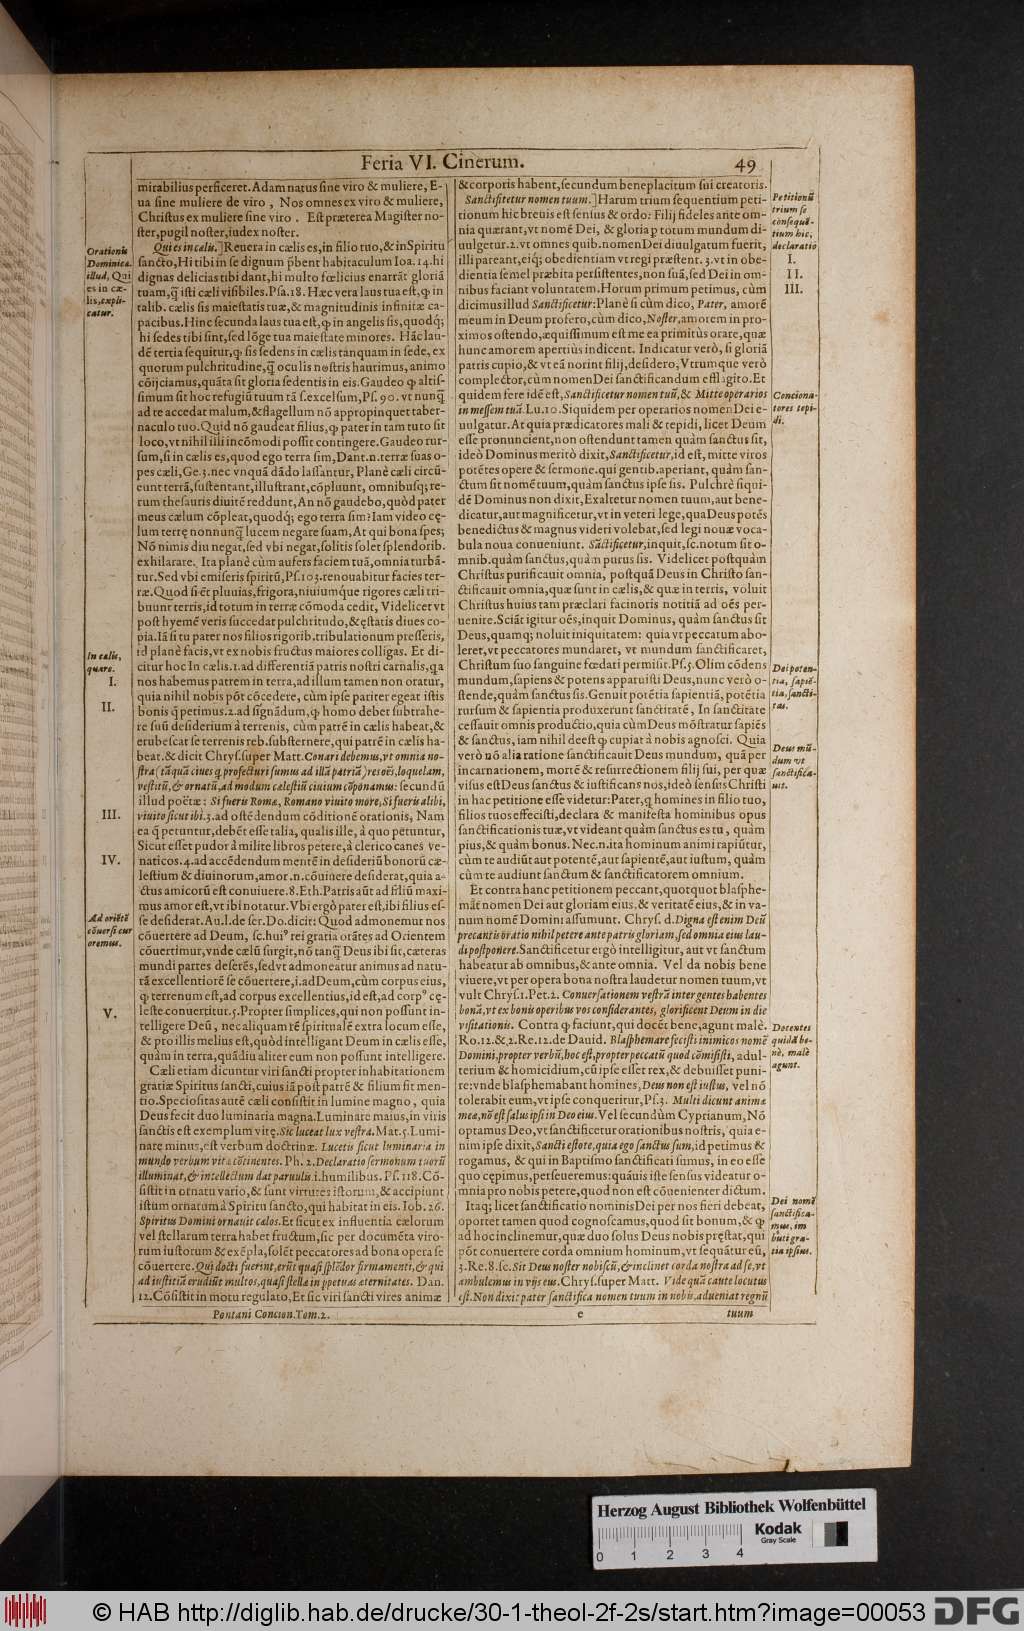 Feria VI. Cinerum. 49
mirabilius perficeret. Adam natus sine viro & muliere, E-
ua sine muliere de viro, Nos omnes ex viro & muliere,
Christus ex muliere sine viro. Est præterea Magister no-
ster, pugil noster, iudex noster.
Qui es in cælis.] Reuera in cælis es, in filio tuo, & in Spiritu
sancto, Hi tibi in se dignum p̄bent habitaculum Ioa. 14. hi
dignas delicias tibi dant, hi multo fœlicius enarrāt gloriā
tuam, q̄ isti cæli visibiles. Psa. 18. Hæc vera laus tua est, ꝙ in
talib. cælis sis maiestatis tuæ, & magnitudinis infinitæ ca-
pacibus. Hinc secunda laus tua est, ꝙ in angelis sis, quodq́;
hi sedes tibi sint, sed lōge tua maiestate minores. Hāc lau-
dē tertia sequitur, ꝙ sis sedens in cælis tanquam in sede, ex
quorum pulchritudine, q̄ oculis nostris haurimus, animo
cōijciamus, quāta sit gloria sedentis in eis. Gaudeo ꝙ altis-
simum sit hoc refugiū tuum rā s. excelsum, Ps. 90. vt nunq̄
ad te accedat malum, & flagellum nō appropinquet taber-
naculo tuo. Quid nō gaudeat filius, ꝙ pater in tam tuto sit
loco, vt nihil illi incōmodi possit contingere. Gaudeo rur-
sum, si in cælis es, quod ego terra sim, Dant. n. terræ suas o-
pes cæli, Ge. 3. nec vnquā dādo lassantur, Planè cæli circū-
eunt terrā, sustentant, illustrant, cōpluunt, omnibusq; re-
rum thesauris diuitē reddunt, An nō gaudebo, quòd pater
meus cælum cōpleat, quodq́; ego terra sim? Iam video cę-
lum terrę nonnunq̄ lucem negare suam, At qui bona spes;
Nō nimis diu negat, sed vbi negat, solitis solet splendorib.
exhilarare. Ita planè cùm aufers faciem tuā, omnia turbā-
tur. Sed vbi emiseris spiritū, Ps. 103. renouabitur facies ter-
ræ. Quod si et pluuias, frigora, niuiumq́ue rigores cæli tri-
buunt terris, id totum in terræ cōmoda cedit, Videlicet vt
post hyemē veris succedat pulchritudo, & ęstatis diues co-
pia. Iā si tu pater nos filios rigorib. tribulationum presseris,
id planè facis, vt ex nobis fructus maiores colligas. Et di-
citur hoc In cælis. 1. ad differentiā patris nostri carnalis, qa
nos habemus patrem in terra, ad illum tamen non oratur,
quia nihil nobis pōt cōcedere, cùm ipse pariter egeat istis
bonis q̄ petimus. 2. ad signādum, ꝙ homo debet subtrahe-
re suū desiderium à terrenis, cùm patrē in cælis habeat, &
erubescat se terrenis reb. substernere, qui patrē in cælis ha-
beat. & dicit Chrys. super Matt. Conari debemus, vt omnia no-
stra (tāquā ciues q profecturi sumus ad illā patriā) res oēs, loquelam,
vestitū, & ornatū, ad modum cælestiū ciuium cōponamus: secundū
illud poëtæ: Si fueris Romæ, Romano viuito more, Si fueris alibi,
viuito sicut ibi. 3. ad ostēdendum cōditionē orationis, Nam
ea q̄ petuntur, debēt esse talia, qualis ille, à quo petuntur,
Sicut esset pudor à milite libros petere, à clerico canes ve-
naticos. 4. ad accēdendum mentē in desideriū bonorū cæ-
lestium & diuinorum, amor .n. cōuinere desiderat, quia a-
ctus amicorū est conuiuere. 8. Eth. Patris aūt ad filiū maxi-
mus amor est, vt ibi notatur. Vbi ergò pater est, ibi filius es-
se desiderat. Au. l. de ser. Do. dicit: Quod admonemur nos
cōuertere ad Deum, sc. huiꝰ rei gratia orātes ad Orientem
cōuertimur, vnde cælū surgit, nō tanq̄ Deus ibi sit, cæteras
mundi partes deserēs, sed vt admoneatur animus ad natu-
rā excellentiorē se cōuertere, i. ad Deum, cùm corpus eius,
ꝙ terrenum est, ad corpus excellentius, id est, ad corpꝰ cę-
leste conuertitur. 5. Propter simplices, qui non possunt in-
telligere Deū, nec aliquam rē spiritualē extra locum esse,
& pro illis melius est, quòd intelligant Deum in cælis esse,
quàm in terra, quādiu aliter eum non possunt intelligere.
Cæli etiam dicuntur viri sancti propter inhabitationem
gratiæ Spiritus sancti, cuius iā post patrē & filium fit men-
tio. Speciositas autē cæli consistit in lumine magno, quia
Deus fecit duo luminaria magna. Luminare maius, in viris
sanctis est exemplum vitę. Sic luceat lux vestra. Mat. 5. Lumi-
nare minus, est verbum doctrinæ. Lucetis sicut luminaria in
mundo verbum vitæ cōtinentes. Ph. 2. Declaratio sermonum tuorū
illuminat, & intellectum dat paruulis. i. humilibus. Ps. 118. Cō-
sistit in ornatu vario, & sunt virtutes istorum, & accipiunt
istum ornatum à Spiritu sancto, qui habitat in eis. Iob. 26.
Spiritus Domini ornauit cælos. Et sicut ex influentia cælorum
vel stellarum terra habet fructum, sic per documēta viro-
rum iustorum & exēpla, solēt peccatores ad bona opera se
cōuertere. Qui docti fuerint, erūt quasi splēdor firmamenti, & qui
ad iustitiā erudiūt multos, quasi stellæ in ppetuas æternitates. Dan.
12. Cōsistit in motu regulato, Et sic viri sancti vires animæ
Orationis
Dominicæ
illud, Qui
es in cæ-
lis, expli-
catur.
In cælis,
quare.
I.
II.
III.
IV.
Ad oriētē
cōuersi cur
oremus.
V.
& corporis habent, secundum beneplacitum sui creatoris.
Sanctifitetur nomen tuum.] Harum trium sequentium peti-
tionum hic breuis est sensus & ordo: Filij fideles ante om-
nia quærant, vt nomē Dei, & gloria p totum mundum di-
uulgetur. 2. vt omnes quib. nomen Dei diuulgatum fuerit,
illi pareant, eiq́; obedientiam vt regi præstent. 3. vt in obe-
dientia semel præbita persistentes, non suā, sed Dei in om-
nibus faciant voluntatem. Horum primum petimus, cùm
dicimus illud Sanctificetur: Planè si cùm dico, Pater, amorē
meum in Deum profero, cùm dico, Noster, amorem in pro-
ximos ostendo, æquissimum est me ea primitùs orare, quæ
hunc amorem apertiùs indicent. Indicatur verò, si gloriā
patris cupio, & vt eā norint filij, desidero, Vtrumque verò
complector, cùm nomen Dei sanctificandum efflagito. Et
quidem fere idē est, Sanctificetur nomen tuū, & Mitte operarios
in messem tuā. Lu. 10. Siquidem per operarios nomen Dei e-
uulgatur. At quia prædicatores mali & tepidi, licet Deum
esse pronuncient, non ostendunt tamen quàm sanctus sit,
ideò Dominus meritò dixit, Sanctificetur, id est, mitte viros
potētes opere & sermone. qui gentib. aperiant, quàm san-
ctum sit nomē tuum, quàm sanctus ipse sis. Pulchrè siqui-
dē Dominus non dixit, Exaltetur nomen tuum, aut bene-
dicatur, aut magnificetur, vt in veteri lege, qua Deus potēs
benedictus & magnus videri volebat, sed legi nouæ voca-
bula noua conueniunt. Sāctificetur, inquit, sc. notum sit o-
mnib. quàm sanctus, quàm purus sis. Videlicet postquàm
Christus purificauit omnia, postquā Deus in Christo san-
ctificauit omnia, quæ sunt in cælis, & quæ in terris, voluit
Christus huius tam præclari facinoris notitiā ad oēs per-
uenire. Sciāt igitur oēs, inquit Dominus, quàm sanctus sit
Deus, quamq; noluit iniquitatem: quia vt peccatum abo-
leret, vt peccatores mundaret, vt mundum sanctificaret,
Christum suo sanguine fœdari permisit. Ps. 5. Olim cōdens
mundum, sapiens & potens apparuisti Deus, nunc verò o-
stende, quàm sanctus sis. Genuit potētia sapientiā, potētia
rursum & sapientia produxerunt sanctitatē, In sanctitate
cessauit omnis productio, quia cùm Deus mōstratur sapiēs
& sanctus, iam nihil deest ꝙ cupiat à nobis agnosci. Quia
verò nō alia ratione sanctificauit Deus mundum, quā per
incarnationem, mortē & resurrectionem filij sui, per quæ
visus est Deus sanctus & iustificans nos, ideò sensus Christi
in hac petitione esse videtur: Pater, q homines in filio tuo,
filios tuos effecisti, declara & manifesta hominibus opus
sanctificationis tuæ, vt videant quàm sanctus es tu, quàm
pius, & quàm bonus. Nec .n. ita hominum animi rapiūtur,
cùm te audiūt aut potentē, aut sapientē, aut iustum, quàm
cùm te audiunt sanctum & sanctificatorem omnium.
Et contra hanc petitionem peccant, quotquot blasphe-
māt nomen Dei aut gloriam eius, & veritatē eius, & in va-
num nomē Domini assumunt. Chrys. d. Digna est enim Deū
precantis oratio nihil petere ante patris gloriam, sed omnia eius lau-
di postponere. Sanctificetur ergò intelligitur, aut vt sanctum
habeatur ab omnibus, & ante omnia. Vel da nobis bene
viuere, vt per opera bona nostra laudetur nomen tuum, vt
vult Chrys. 1. Pet. 2. Conuersationem vestrā inter gentes habentes
bonā, vt ex bonis operibus vos considerantes, glorificent Deum in die
visitationis. Contra ꝙ faciunt, qui docēt bene, agunt malè.
Ro. 12. & 2. Re. 12. de Dauid. Blasphemare fecisti inimicos nomē
Domini, propter verbū, hoc est, propter peccatū quod cōmisisti, adul-
terium & homicidium, cū ipse esset rex, & debuisset puni-
re: vnde blasphemabant homines, Deus non est iustus, vel nō
tolerabit eum, vt ipse conqueritur, Ps. 3. Multi dicunt animæ
meæ, nō est salus ipsi in Deo eius. Vel secundùm Cyprianum, Nō
optamus Deo, vt sanctificetur orationibus nostris, quia e-
nim ipse dixit, Sancti estote, quia ego sanctus sum, id petimus &
rogamus, & qui in Baptismo sanctificati sumus, in eo esse
quo cępimus, perseueremus: quāuis iste sensus videatur o-
mnia pro nobis petere, quod non est cōuenienter dictum.
Itaq; licet sanctificatio nominis Dei per nos fieri debeat,
oportet tamen quod cognoscamus, quod sit bonum, & ꝙ
ad hoc inclinemur, quæ duo solus Deus nobis pręstat, qui
pōt conuertere corda omnium hominum, vt sequātur eū,
3. Re. 8. sc. Sit Deus noster nobiscū, & inclinet corda nostra ad se, vt
ambulemus in vijs eius. Chrys. super Matt. Vide quā caute locutus
est. Non dixit pater sanctifica nomen tuum in nobis, adueniat regnū
Petitionū
trium se
consequē-
tium hic,
declaratio
I.
II.
III.
Conciona-
tores tepi-
di.
Dei poten-
tia, sapiē-
tia, sancti-
tas.
Deus mū-
dum vt
sanctifica-
uit.
Docentes
quidā be-
nè, malè
agunt.
Dei nomē
sanctifica-
mus, im
buti gra-
tia ipsius.
Pontani Concion. Tom. 2. e tuum
Herzog August Bibliothek Wolfenbüttel
Kodak
Gray Scale
0 1 2 3 4
© HAB http://diglib.hab.de/drucke/30-1-theol-2f-2s/start.htm?image=00053 DFG